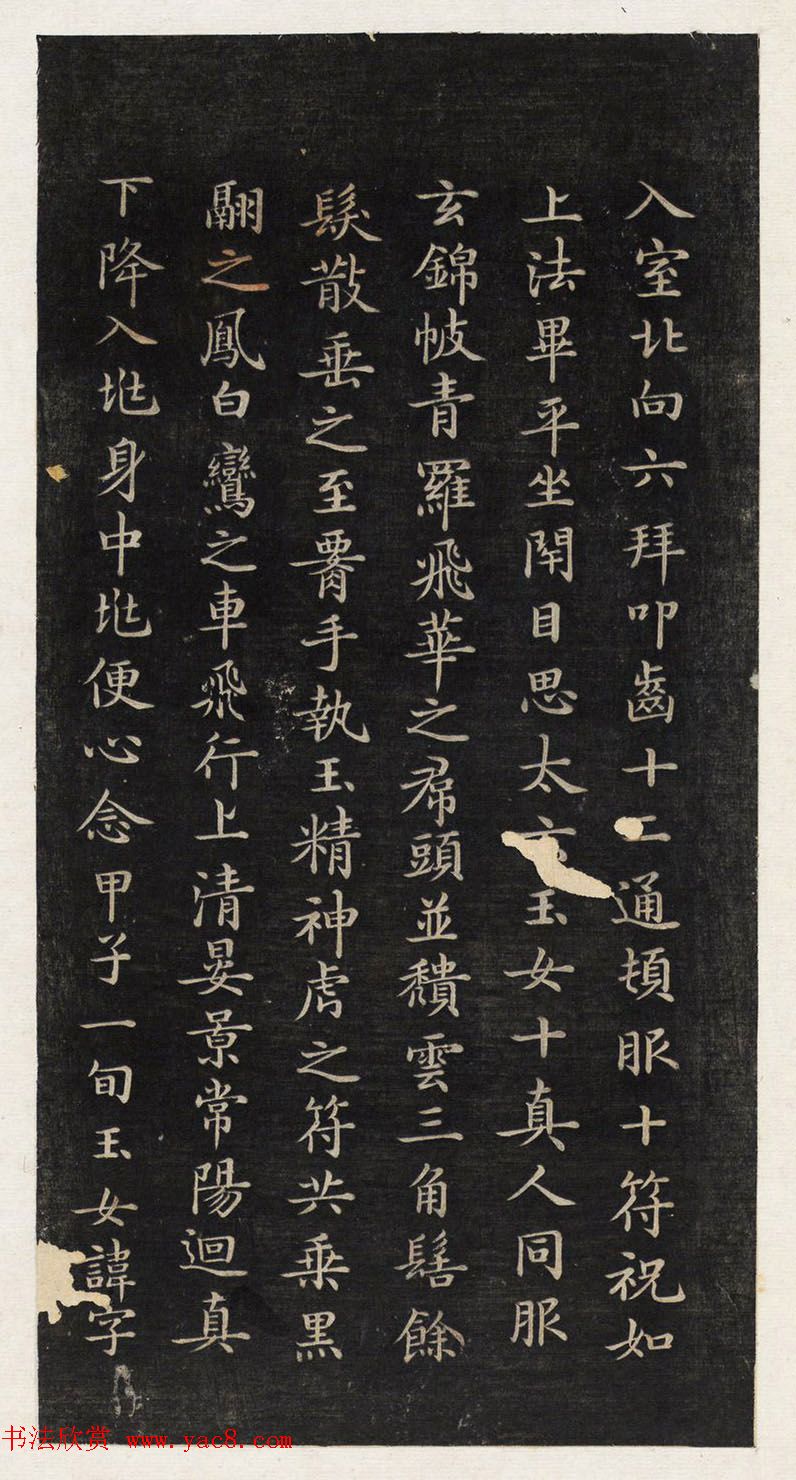 入室北向六拜叩齒十二通頓服十符祝如
上法畢平坐閇目思太玄玉女十真人同服
玄錦帔青羅飛華之帬頭並穨雲三角髻餘
髮散垂之至罾手執玉精神虎之符共乗黑
翮之鳳白鸞之車飛行上清晏景常陽迴真
下降入兆身中兆便心念甲子一旬玉女諱字
书法欣赏 www.yac8.com